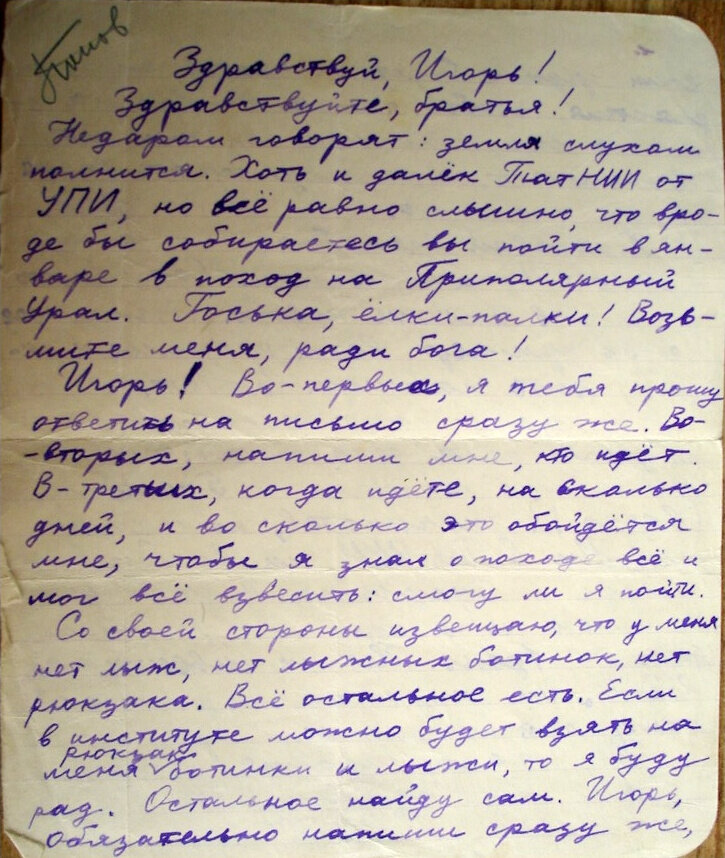 Попов
Здравствуй, Игорь!
Здравствуйте, братья!
Недаром говорят: земля слухом
полнится. Хоть и далёк ТатНИИ от
УПИ, но всё равно слышно, что вро-
де бы собираетесь вы пойти в ян-
варе в поход на Приполярный
Урал. Госька, ёлки-палки! Возь-
мите меня, ради бога!
Игорь! Во-первых, я тебя прошу
ответить на письмо сразу же. Во-
-вторых, напиши мне, кто идёт.
В-третьих, когда идёте, на сколько
дней, и во сколько это обойдётся
мне, чтобы я знал о походе всё и
мог всё взвесить: смогу ли я пойти.
Со своей стороны извещаю, что у меня
нет лыж, нет лыжных ботинок, нет
рюкзака. Всё остальное есть. Если
в институте можно будет взять на
рюкзак
меня ботинки и лыжи, то я буду
рад. Остальное найду сам. Игорь,
обязательно напиши сразу же,